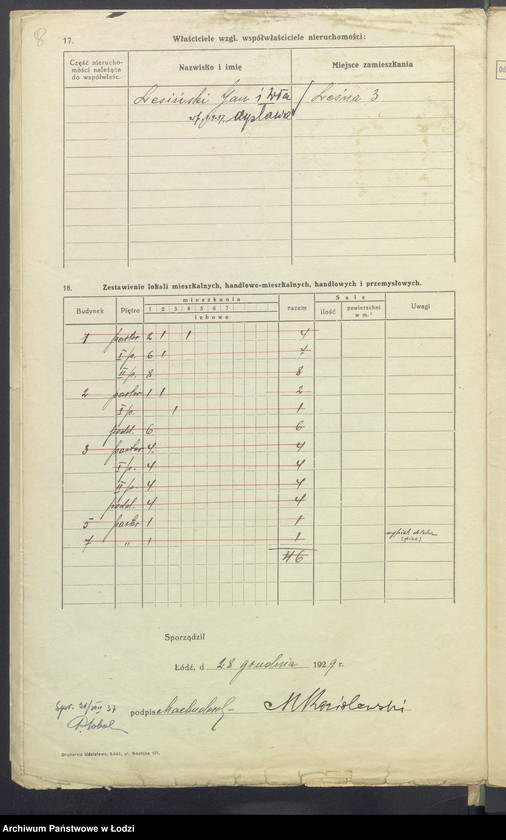 8
17. Właściciele wzgl. współwłaściciele nieruchomości:
Część nierucho-
mości należąca
do współwłaśc.
Nazwisko i imię
Miejsce zamieszkania
Lesiński Jan i Wła Leśna 3
dysława
18. Zestawienie lokali mieszkalnych, handlowo-mieszkalnych, handlowych i przemysłowych.
Budynek Piętro mieszkania razem Sale Uwagi
1 2 3 4 5 6 7 ilość powierzchni w m.²
izbowe
1 parter 2 1 1 4
I p. 6 1 7
II p. 8 8
2 parter 1 1 2
I p. 1 1
podd. 6 6
3 parter 4 4
I p. 4 4
II p. 4 4
podd. 4 4
5 parter 1 1
7 " 1 1
46
Sporządził
Łódź, d 28 grudnia 1929 r.
podpis
Drukarnia Udziałowa, Łódź
Archiwum Państwowe w Łodzi